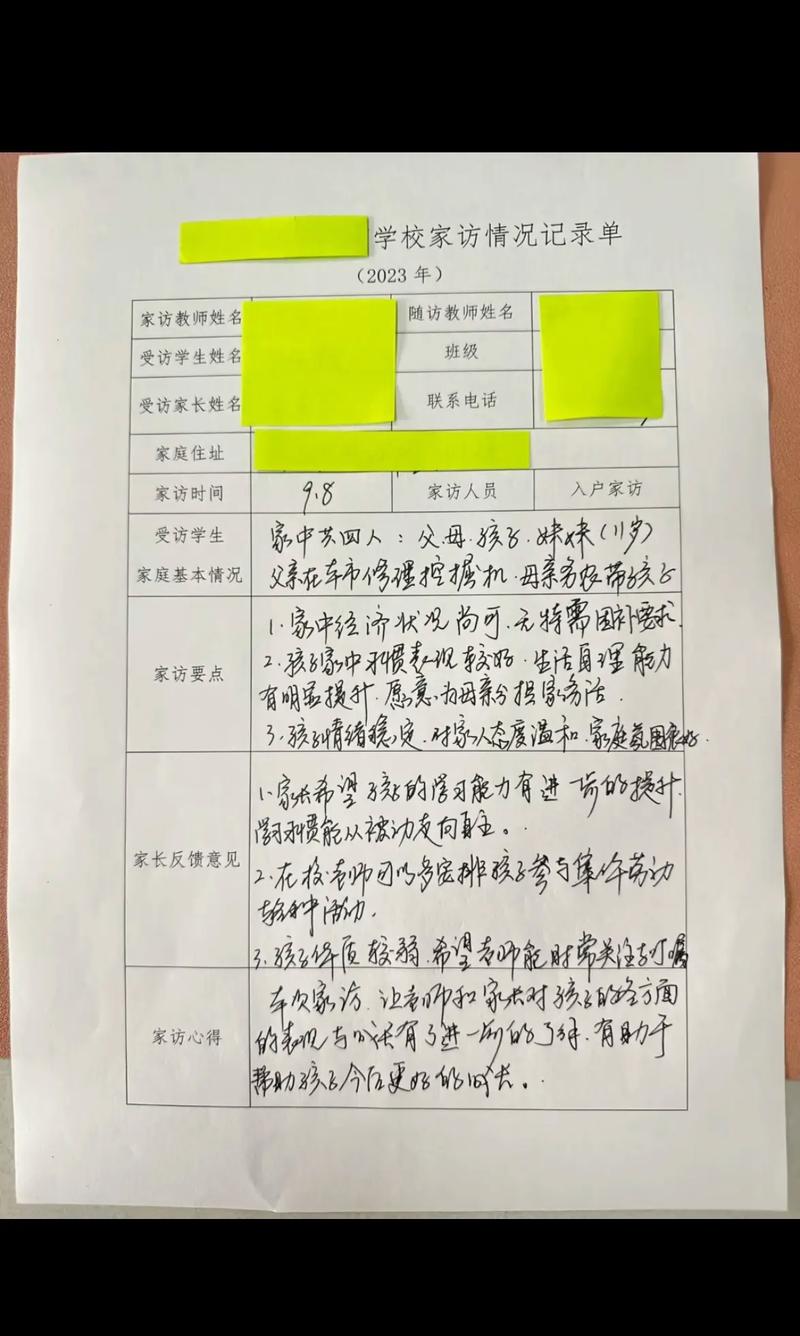 学校家访情况记录单
（2023 年）
家访教师姓名 随访教师姓名
受访学生姓名 班级
受访家长姓名 联系电话
家庭住址
家访时间 9.8 家访人员 入户家访
受访学生
家庭基本情况
家中共四人：父.母.孩子.妹妹(11岁)
父亲在车市修理挖掘机.母亲务农带孩子
家访要点
1.家中经济状况尚可.无特需困补要求.
2.孩子家中习惯表现较好.生活自理能力
有明显提升.愿意为母亲分担家务活.
3.孩子情绪稳定.对家人态度温和.家庭氛围很好.
家长反馈意见
1.家长希望孩子的学习能力有进一步的提升.
学习习惯能从被动走向自主。.
2.在校.老师可以多安排孩子参与集体劳动
等活动.
3.孩子体质较弱.希望老师能时常关注与叮嘱
家访心得
本次家访.让老师和家长对孩子的各方面
的表现与成长有了进一步的了解.有助于
帮助孩子今后更好的成长。.